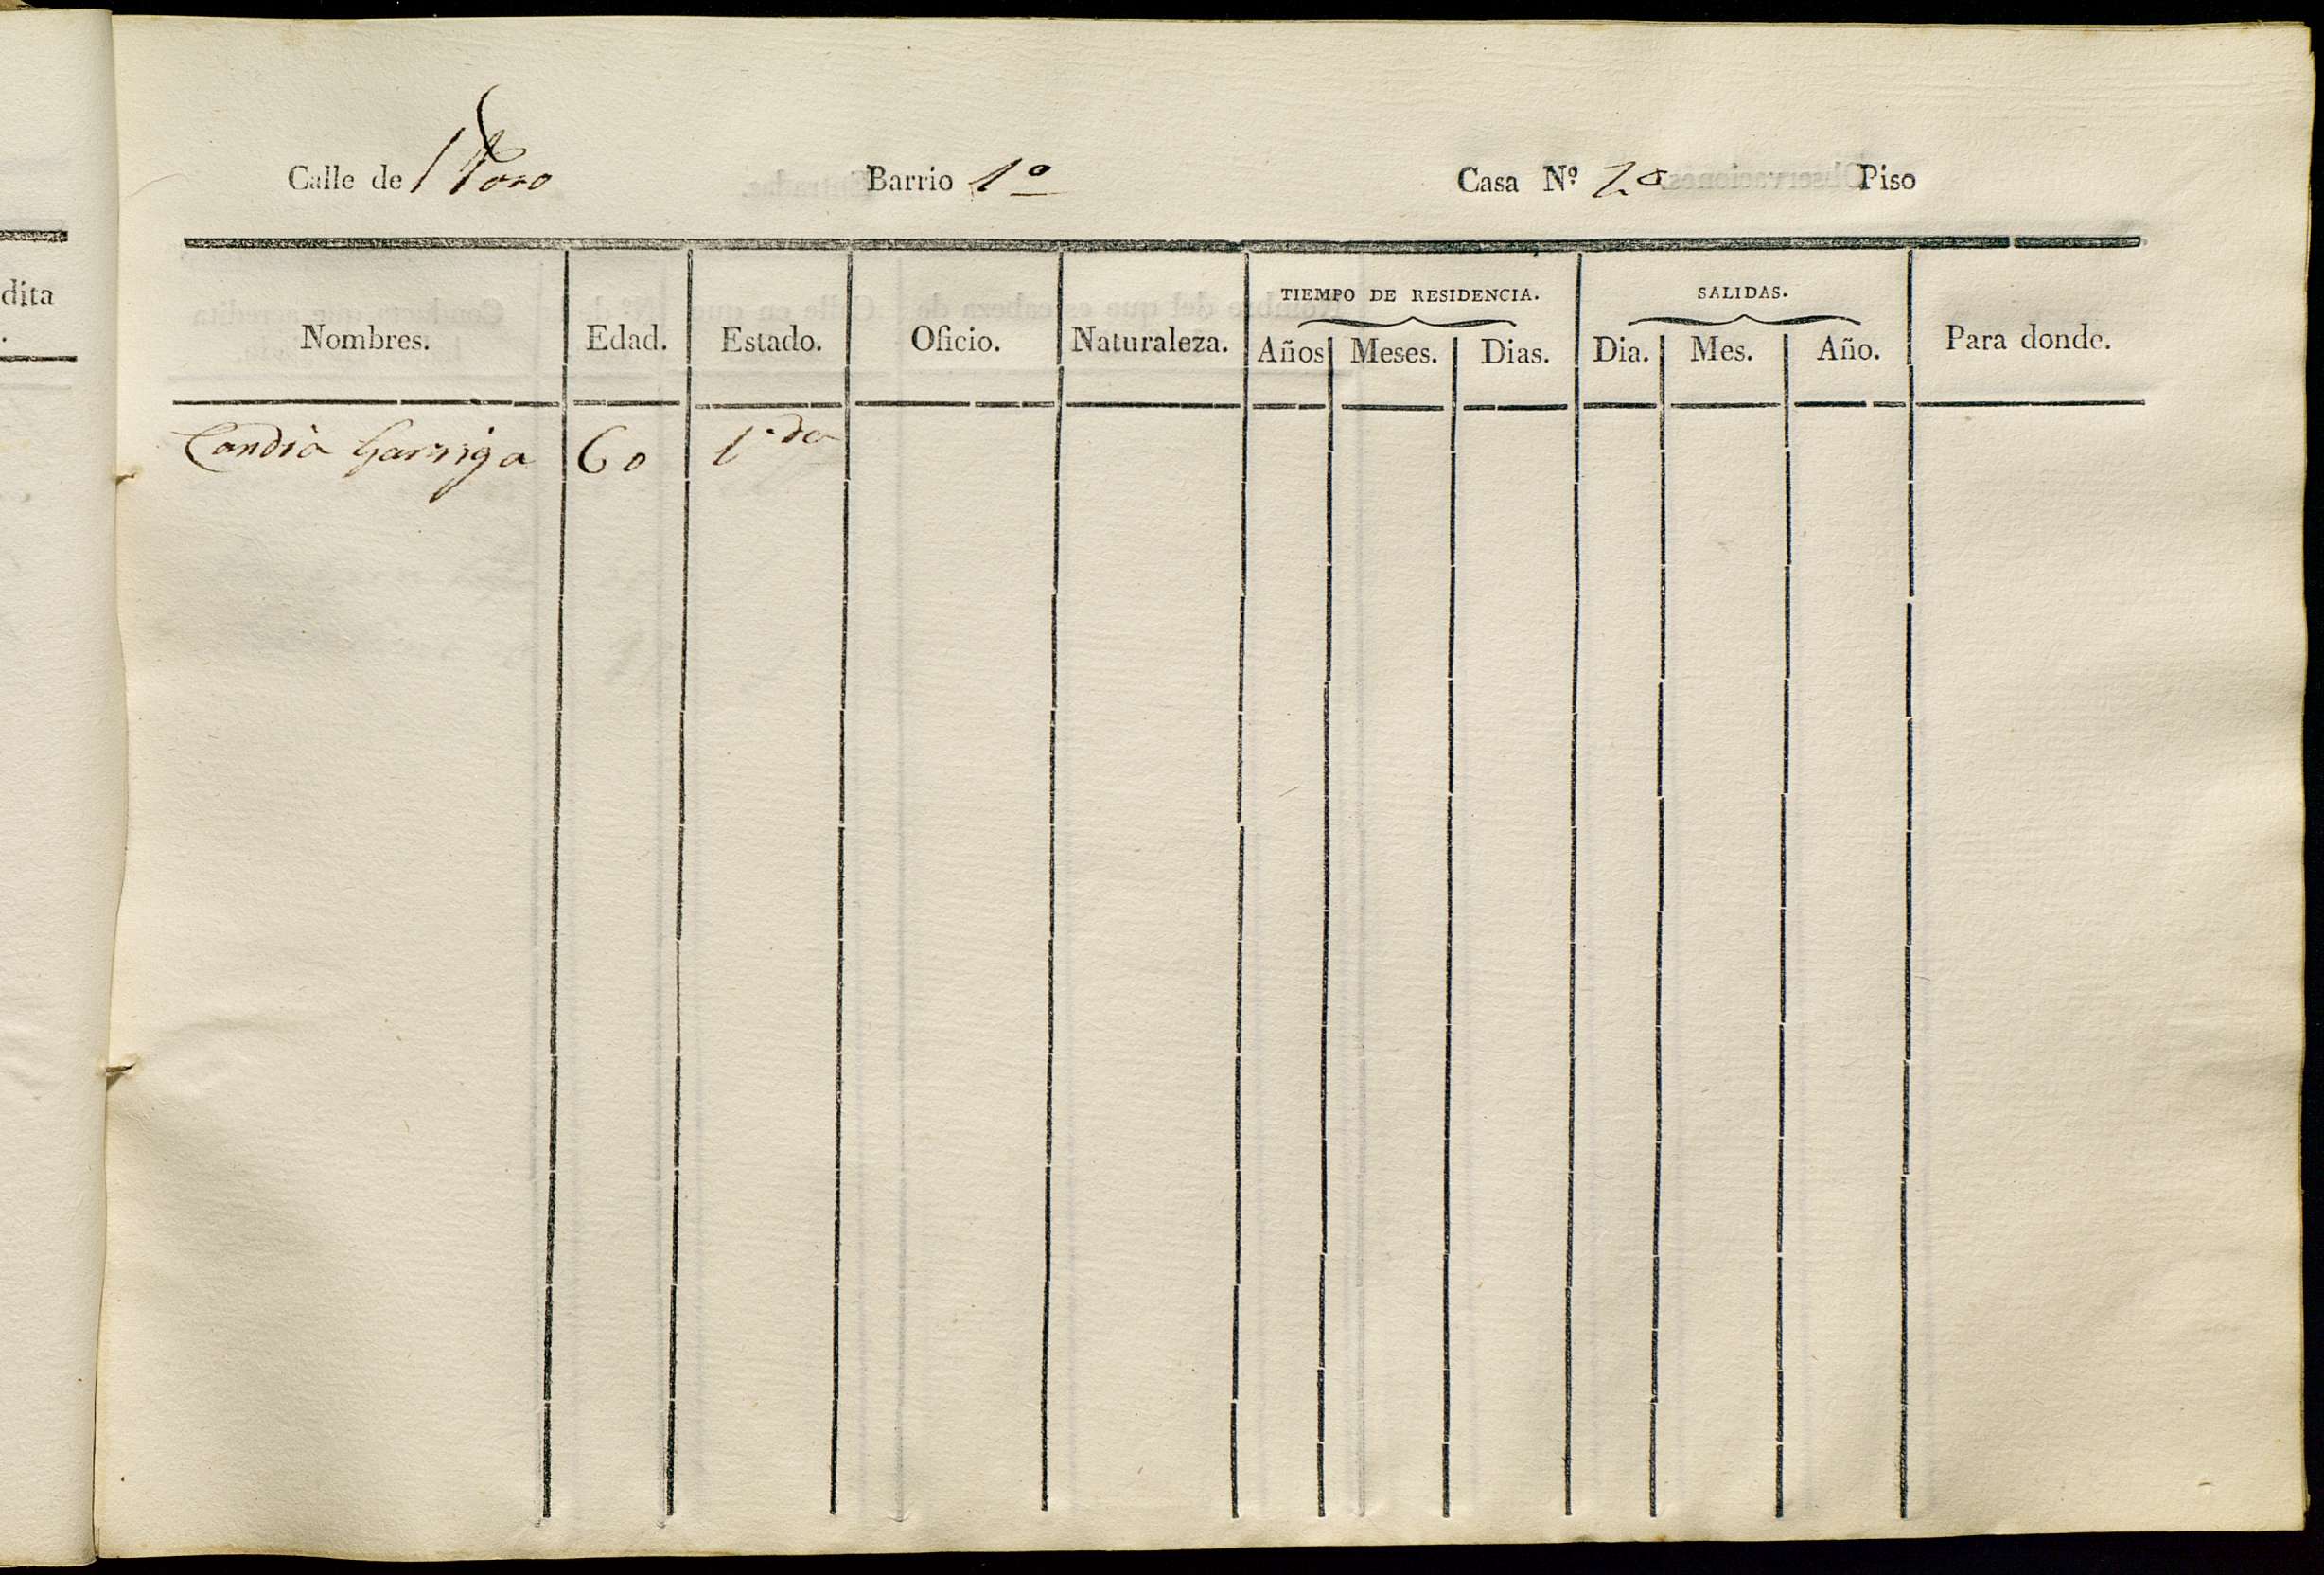 dita
.
Calle de Barrio 1º Casa Nº Piso
Nombres. Edad. Estado. Oficio. Naturaleza. TIEMPO DE RESIDENCIA. SALIDAS. Para donde.
Años Meses. Dias. Dia. Mes. Año.
Candia Garriga 60